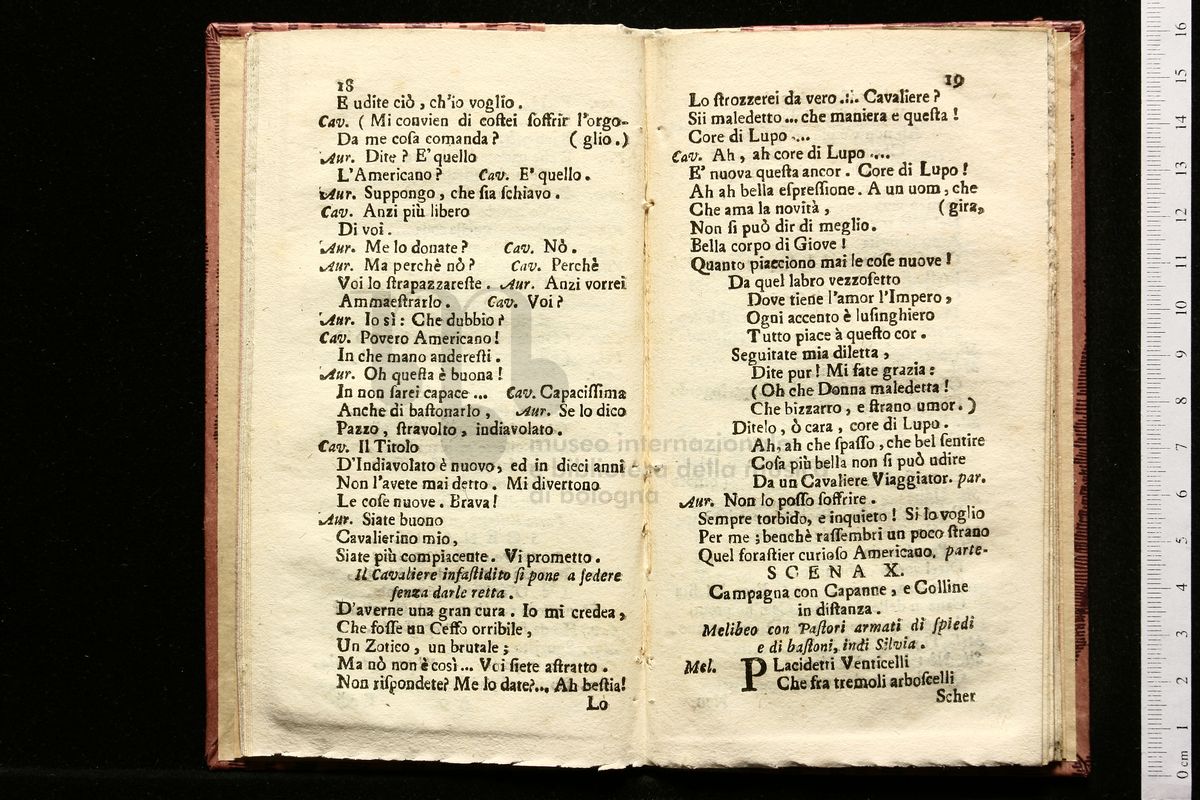 18
E udite ciò, ch'io voglio.
Cav. ( Mi convien di costei soffrir l'orgo-
Da me cosa comanda? ( glio.)
Aur. Dite? E' quello
L'Americano? Cav. E' quello.
Aur. Suppongo, che sia schiavo.
Cav. Anzi più libero
Di voi.
Aur. Me lo donate? Cav. Nò.
Aur. Ma perchè nò? Cav. Perchè
Voi lo strapazzareste. Aur. Anzi vorrei
Ammaestrarlo. Cav. Voi?
Aur. Io sì: Che dubbio?
Cav. Povero Americano!
In che mano anderesti.
Aur. Oh questa è buona!
In non sarei capace ... Cav. Capacissima
Anche di bastonarlo, Aur. Se lo dico
Pazzo, stravolto, indiavolato.
Cav. Il Titolo
D'Indiavolato è nuovo, ed in dieci anni
Non l'avete mai detto. Mi divertono
Le cose nuove. Brava!
Aur. Siate buono
Cavalierino mio,
Siate più compiacente. Vi prometto.
Il Cavaliere infastidito si pone a sedere
senza darle retta.
D'averne una gran cura. Io mi credea,
Che fosse un Ceffo orribile,
Un Zotico, un brutale;
Ma nò non è così... Voi siete astratto.
Non rispondete? Me lo date?... Ah bestia!
Lo
19
Lo strozzerei da vero... Cavaliere?
Sii maledetto ... che maniera e questa!
Core di Lupo ....
Cav. Ah, ah core di Lupo ....
E' nuova questa ancor. Core di Lupo!
Ah ah bella espressione. A un uom, che
Che ama la novità, ( gira,
Non si può dir di meglio.
Bella corpo di Giove!
Quanto piacciono mai le cose nuove!
Da quel labro vezzosetto
Dove tiene l'amor l'Impero,
Ogni accento è lusinghiero
Tutto piace à questo cor.
Seguitate mia diletta,
Dite pur! Mi fate grazia:
( Oh che Donna maledetta!
Che bizzarro, e strano umor.)
Ditelo, ò cara, core di Lupo.
Ah, ah che spasso, che bel sentire
Cosa più bella non si può udire
Da un Cavaliere Viaggiator. par.
Aur. Non lo posso soffrire.
Sempre torbido, e inquieto! Si lo voglio
Per me; benchè rassembri un poco strano
Quel forastier curioso Americano. parte.
SCENA X.
Campagna con Capanne, e Colline
in distanza.
Melibeo con Pastori armati di spiedi
e di bastoni, indi Silvia.
Mel. PLacidetti Venticelli
Che fra tremoli arboscelli
Scher
museo internazionale
e biblioteca della musica
di bologna
0 cm
1
2
3
4
5
6
7
8
9
10
11
12
13
14
15
16